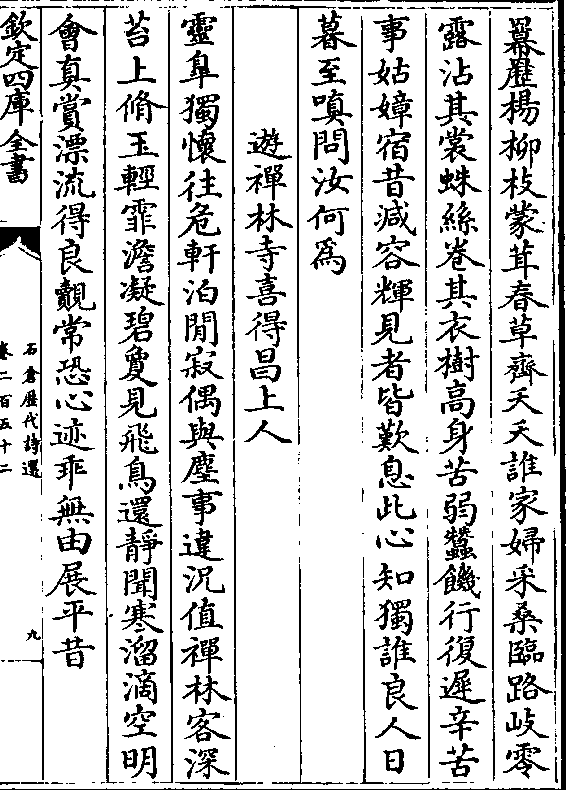 羃䍥楊柳枝蒙茸春草齊夭夭誰家婦采桑臨路岐零
露沾其裳蛛絲卷其衣樹高身苦弱蠶饑行復遲辛苦
事姑嫜宿昔減容輝見者皆歎息此心知獨誰良人日
暮至嗔問汝何爲
遊禪林寺喜得昌上人
靈阜獨懷往危軒泊閒寂偶與塵事違況值禪林客深
苔上脩玉輕霏澹凝碧夐見飛鳥還靜聞寒溜滴空明
會真賞漂流得良覿常恐心迹乖無由展平昔
欽定四庫全書
石倉歷代詩選
卷二百五十二
九